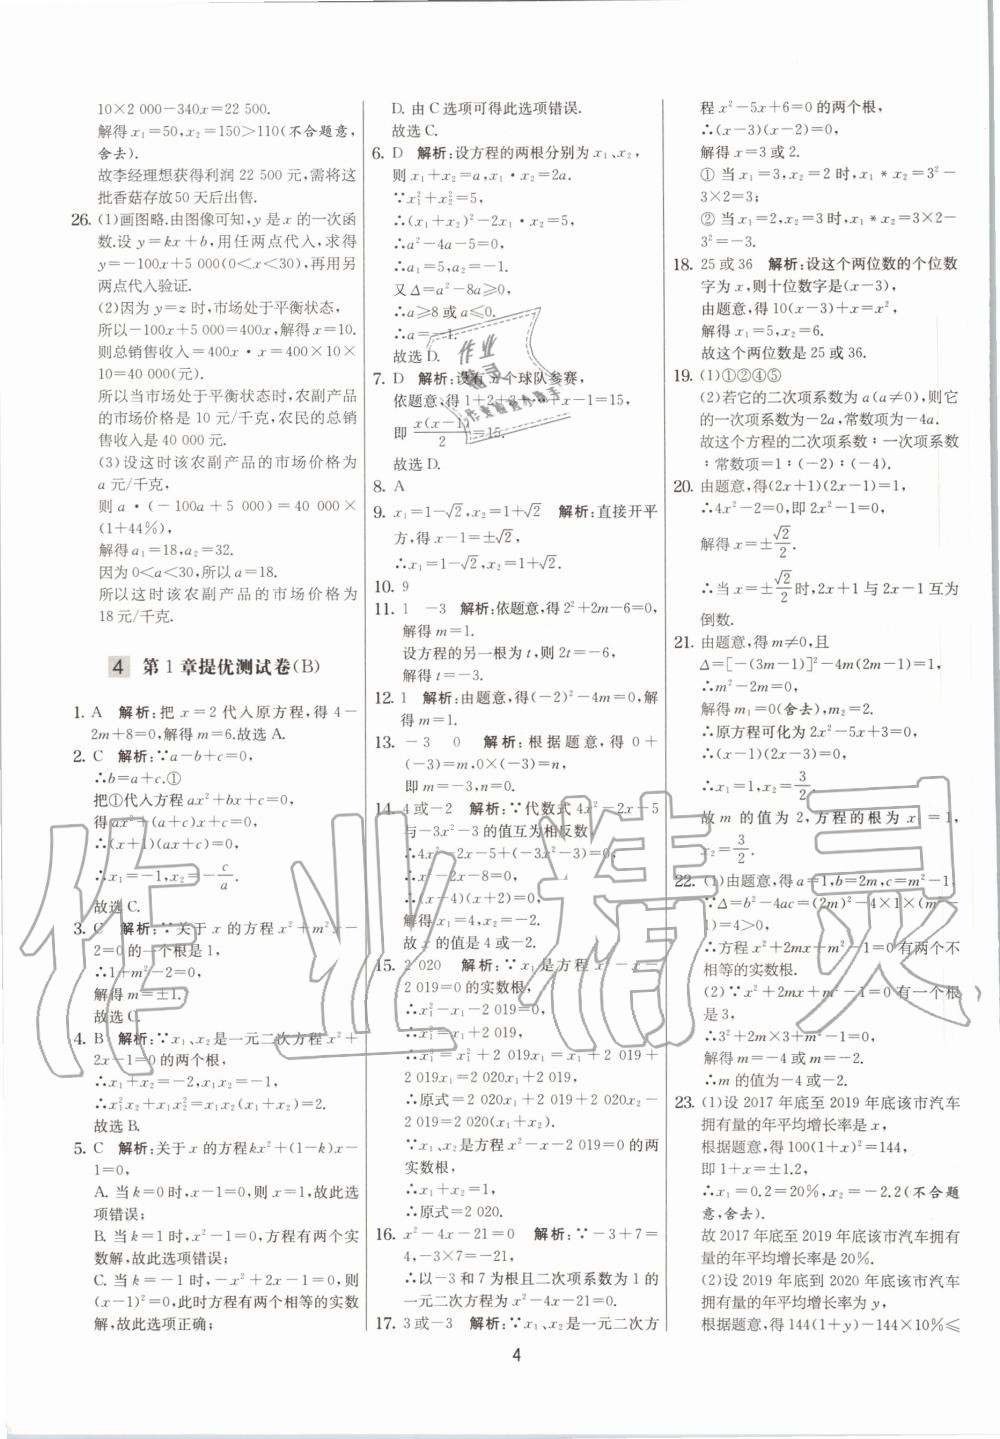 10×2 000−340x=22 500.
解得 x₁=50,x₂=150>110(不合题意,
舍去).
故李经理想获得利润 22 500 元,需将这
批香菇存放50 天后出售.
26. (1)画图略.由图像可知,y 是 x 的一次函
数.设 y=kx+b,用任两点代入,求得
y=−100x+5 000(0<x<30),再用另
两点代入验证.
(2)因为 y=z 时,市场处于平衡状态,
所以−100x+5 000=400x,解得 x=10.
则总销售收入=400x·x=400×10×
10=40 000(元).
所以当市场处于平衡状态时,农副产品
的市场价格是 10 元/千克,农民的总销
售收入是 40 000 元.
(3)设这时该农副产品的市场价格为
a 元/千克,
则 a·(−100a+5 000)=40 000×
(1+44%),
解得 a₁=18,a₂=32.
因为 0<a<30,所以 a=18.
所以这时该农副产品的市场价格为
18 元/千克.
4 第 1 章提优测试卷(B)
1. A 解析:把 x=2 代入原方程,得 4−
2m+8=0,解得 m=6.故选 A.
2. C 解析:∵a−b+c=0,
∴b=a+c.①
把①代入方程 ax²+bx+c=0,
得 ax²+(a+c)x+c=0,
∴(x+1)(ax+c)=0,
∴x₁=−1,x₂=−c/a.
故选 C.
3. C 解析:∵关于 x 的方程 x²+m²x−
2=0 的一个根是 1,
∴1+m²−2=0,
解得 m=±1.
故选 C.
4. B 解析:∵x₁、x₂ 是一元二次方程 x²+
2x−1=0 的两个根,
∴x₁+x₂=−2,x₁x₂=−1,
∴x₁²x₂+x₁x₂²=x₁x₂(x₁+x₂)=2.
故选 B.
5. C 解析:关于 x 的方程kx²+(1−k)x−
1=0,
A. 当 k=0 时,x−1=0,则 x=1,故此选
项错误;
B. 当 k=1 时,x²−1=0,方程有两个实
数解,故此选项错误;
C. 当 k=−1 时,−x²+2x−1=0,则
(x−1)²=0,此时方程有两个相等的实数
解,故此选项正确;
D. 由 C 选项可得此选项错误.
故选 C.
6. D 解析:设方程的两根分别为 x₁、x₂,
则 x₁+x₂=a,x₁·x₂=2a.
∵x₁²+x₂²=5,
∴(x₁+x₂)²−2x₁·x₂=5,
∴a²−4a−5=0,
∴a₁=5,a₂=−1.
又Δ=a²−8a≥0,
∴a≥8 或 a≤0.
∴a=−1.
故选 D.
7. D 解析:设有 x 个球队参赛,
依题意,得 1+2+3+…+x−1=15,
即 x(x−1)/2=15.
故选 D.
8. A
9. x₁=1−√2,x₂=1+√2 解析:直接开平
方,得 x−1=±√2,
∴x₁=1−√2,x₂=1+√2.
10. 9
11. 1 −3 解析:依题意,得 2²+2m−6=0,
解得 m=1.
设方程的另一根为 t,则 2t=−6,
解得 t=−3.
12. 1 解析:由题意,得(−2)²−4m=0,解
得 m=1.
13. −3 0 解析:根据题意,得 0+
(−3)=m,0×(−3)=n,
即 m=−3,n=0.
14. 4 或−2 解析:∵代数式 4x²−2x−5
与−3x²−3 的值互为相反数,
∴4x²−2x−5+(−3x²−3)=0,
∴x²−2x−8=0,
∴(x−4)(x+2)=0,
解得 x₁=4,x₂=−2.
故 x 的值是 4 或−2.
15. 2 020 解析:∵x₁ 是方程 x²−x−
2 019=0 的实数根,
∴x₁²−x₁−2 019=0,
∴x₁²=x₁+2 019,
∴x₁³=x₁²+2 019x₁=x₁+2 019+
2 019x₁=2 020x₁+2 019,
∴原式=2 020x₁+2 019+2 020x₂−
2 019=2 020(x₁+x₂).
∵x₁、x₂ 是方程 x²−x−2 019=0 的两
实数根,
∴x₁+x₂=1,
∴原式=2 020.
16. x²−4x−21=0 解析:∵−3+7=
4,−3×7=−21,
∴以−3 和 7 为根且二次项系数为 1 的
一元二次方程为 x²−4x−21=0.
17. 3 或−3 解析:∵x₁、x₂ 是一元二次方
程 x²−5x+6=0 的两个根,
∴(x−3)(x−2)=0,
解得 x=3 或 2.
① 当 x₁=3,x₂=2 时,x₁*x₂=3²−
3×2=3;
② 当 x₁=2,x₂=3 时,x₁*x₂=3×2−
3²=−3.
18. 25 或 36 解析:设这个两位数的个位数
字为 x,则十位数字是(x−3),
由题意,得 10(x−3)+x=x²,
解得 x₁=5,x₂=6.
故这个两位数是 25 或 36.
19. (1)①②④⑤
(2)若它的二次项系数为 a(a≠0),则它
的一次项系数为−2a,常数项为−4a.
故这个方程的二次项系数∶一次项系数
∶常数项=1∶(−2)∶(−4).
20. 由题意,得(2x+1)(2x−1)=1,
∴4x²−2=0,即 2x²−1=0,
解得 x=±√2/2.
∴当 x=±√2/2时,2x+1 与 2x−1 互为
倒数.
21. 由题意,得 m≠0,且
Δ=[−(3m−1)]²−4m(2m−1)=1,
∴m²−2m=0,
解得 m₁=0(舍去),m₂=2.
∴原方程可化为 2x²−5x+3=0,
∴(x−1)(2x−3)=0,
∴x₁=1,x₂=3/2.
故 m 的值为 2,方程的根为 x₁=1,
x₂=3/2.
22. (1)由题意,得 a=1,b=2m,c=m²−1,
∵Δ=b²−4ac=(2m)²−4×1×(m²−
1)=4>0,
∴方程 x²+2mx+m²−1=0 有两个不
相等的实数根.
(2)∵x²+2mx+m²−1=0 有一个根
是 3,
∴3²+2m×3+m²−1=0,
解得 m=−4 或−2.
∴m 的值为−4 或−2.
23. (1)设 2017 年底至 2019 年底该市汽车
拥有量的年平均增长率是 x,
根据题意,得 100(1+x)²=144,
即 1+x=±1.2,
∴x₁=0.2=20%,x₂=−2.2(不合题
意,舍去).
故 2017 年底至 2019 年底该市汽车拥有
量的年平均增长率是 20%.
(2)设 2019 年底到 2020 年底该市汽车
拥有量的年平均增长率为 y,
根据题意,得 144(1+y)−144×10%≤
4
作业精灵
作业
精灵